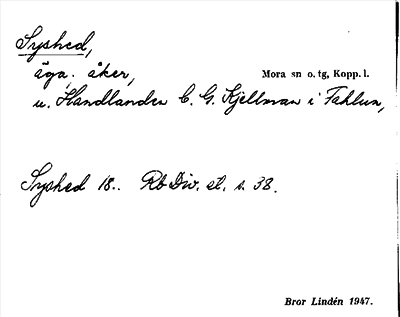 Syshed,
äga, åker, Mora sn o. tg, Kopp. l.
u. Handlanden C. G. Kjellman i Fahlun,
Syshed 18.. Rb Div. st. s. 38.
Bror Lindén 1947.